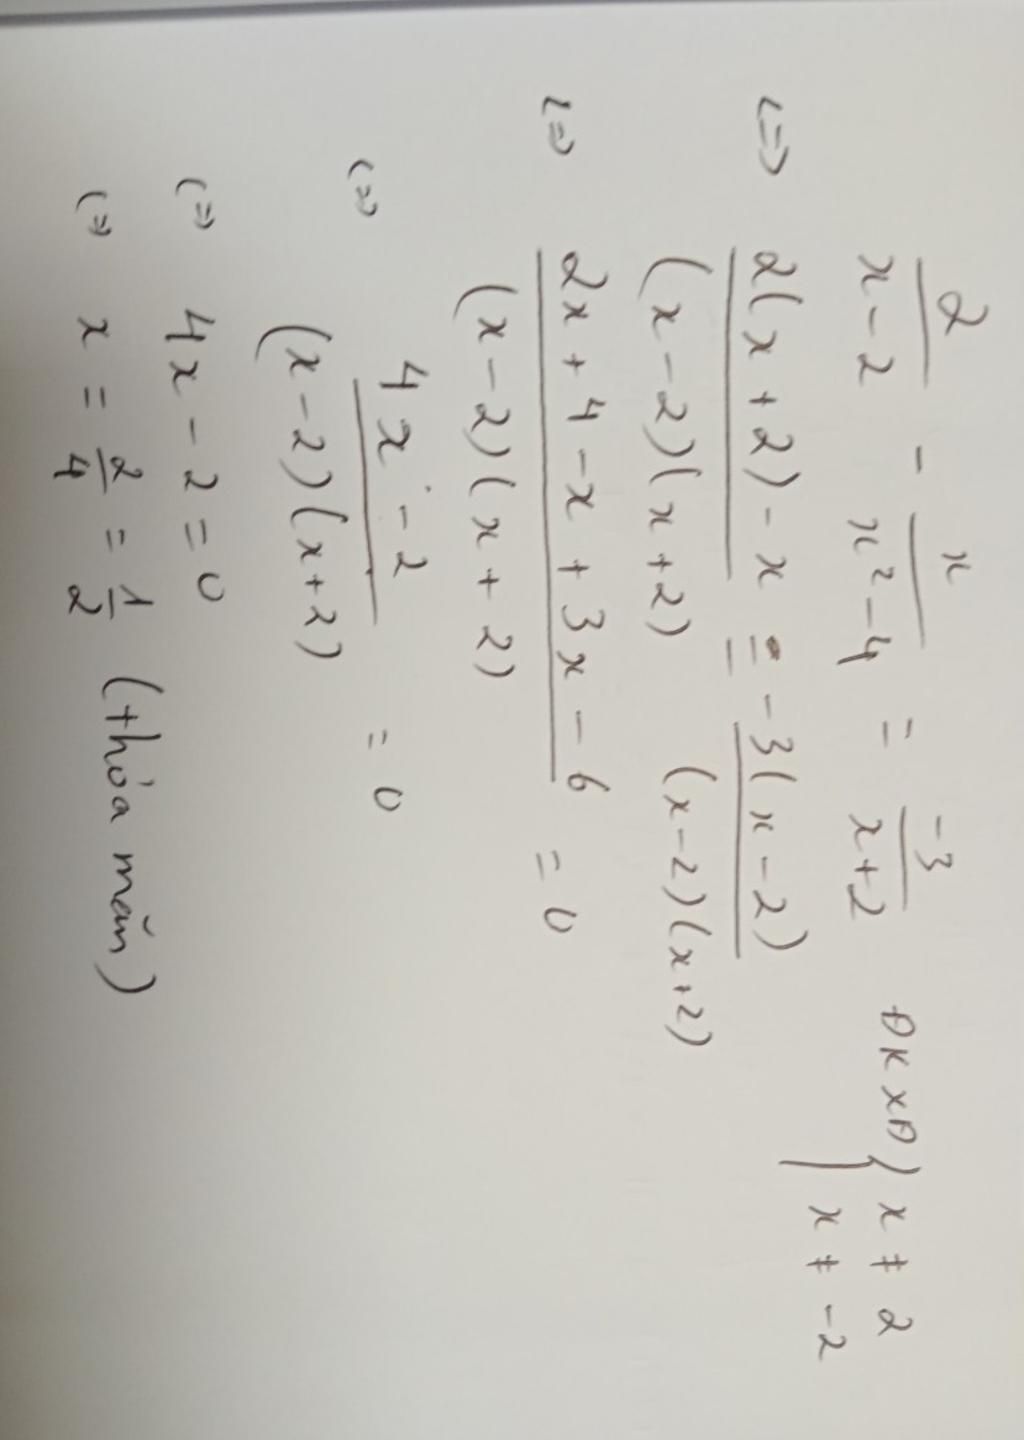 2/(x-2) - x/(x²-4) = -3/(x+2) ĐKXĐ { x ≠ 2
x ≠ -2
<=> (2(x+2) - x)/((x-2)(x+2)) = -3(x-2)/((x-2)(x+2))
<=> (2x + 4 - x + 3x - 6)/((x-2)(x+2)) = 0
<=> (4x - 2)/((x-2)(x+2)) = 0
<=> 4x - 2 = 0
<=> x = 2/4 = 1/2 (thỏa mãn)